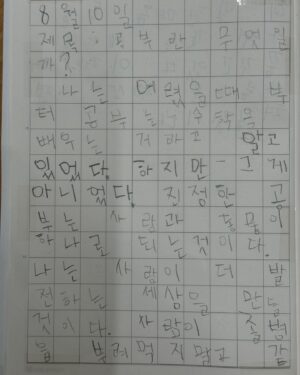 8월 10일
제목: 공부란 무엇일
까?
나는 어렸을때 부
터 공부는 수학을
배우는 거라고 알고
있었다. 하지만 그게
아니었다. 진정한 공
부는 사람과 동물이
하나로 되는것이다.
나는 사람이 더 발
전하는 세상을 만들
것이다. 사람이
을 부려먹지말고 같